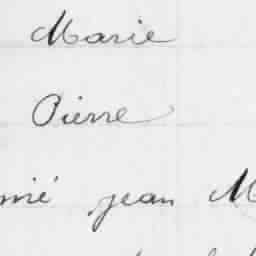 Marie
Pierre
jean